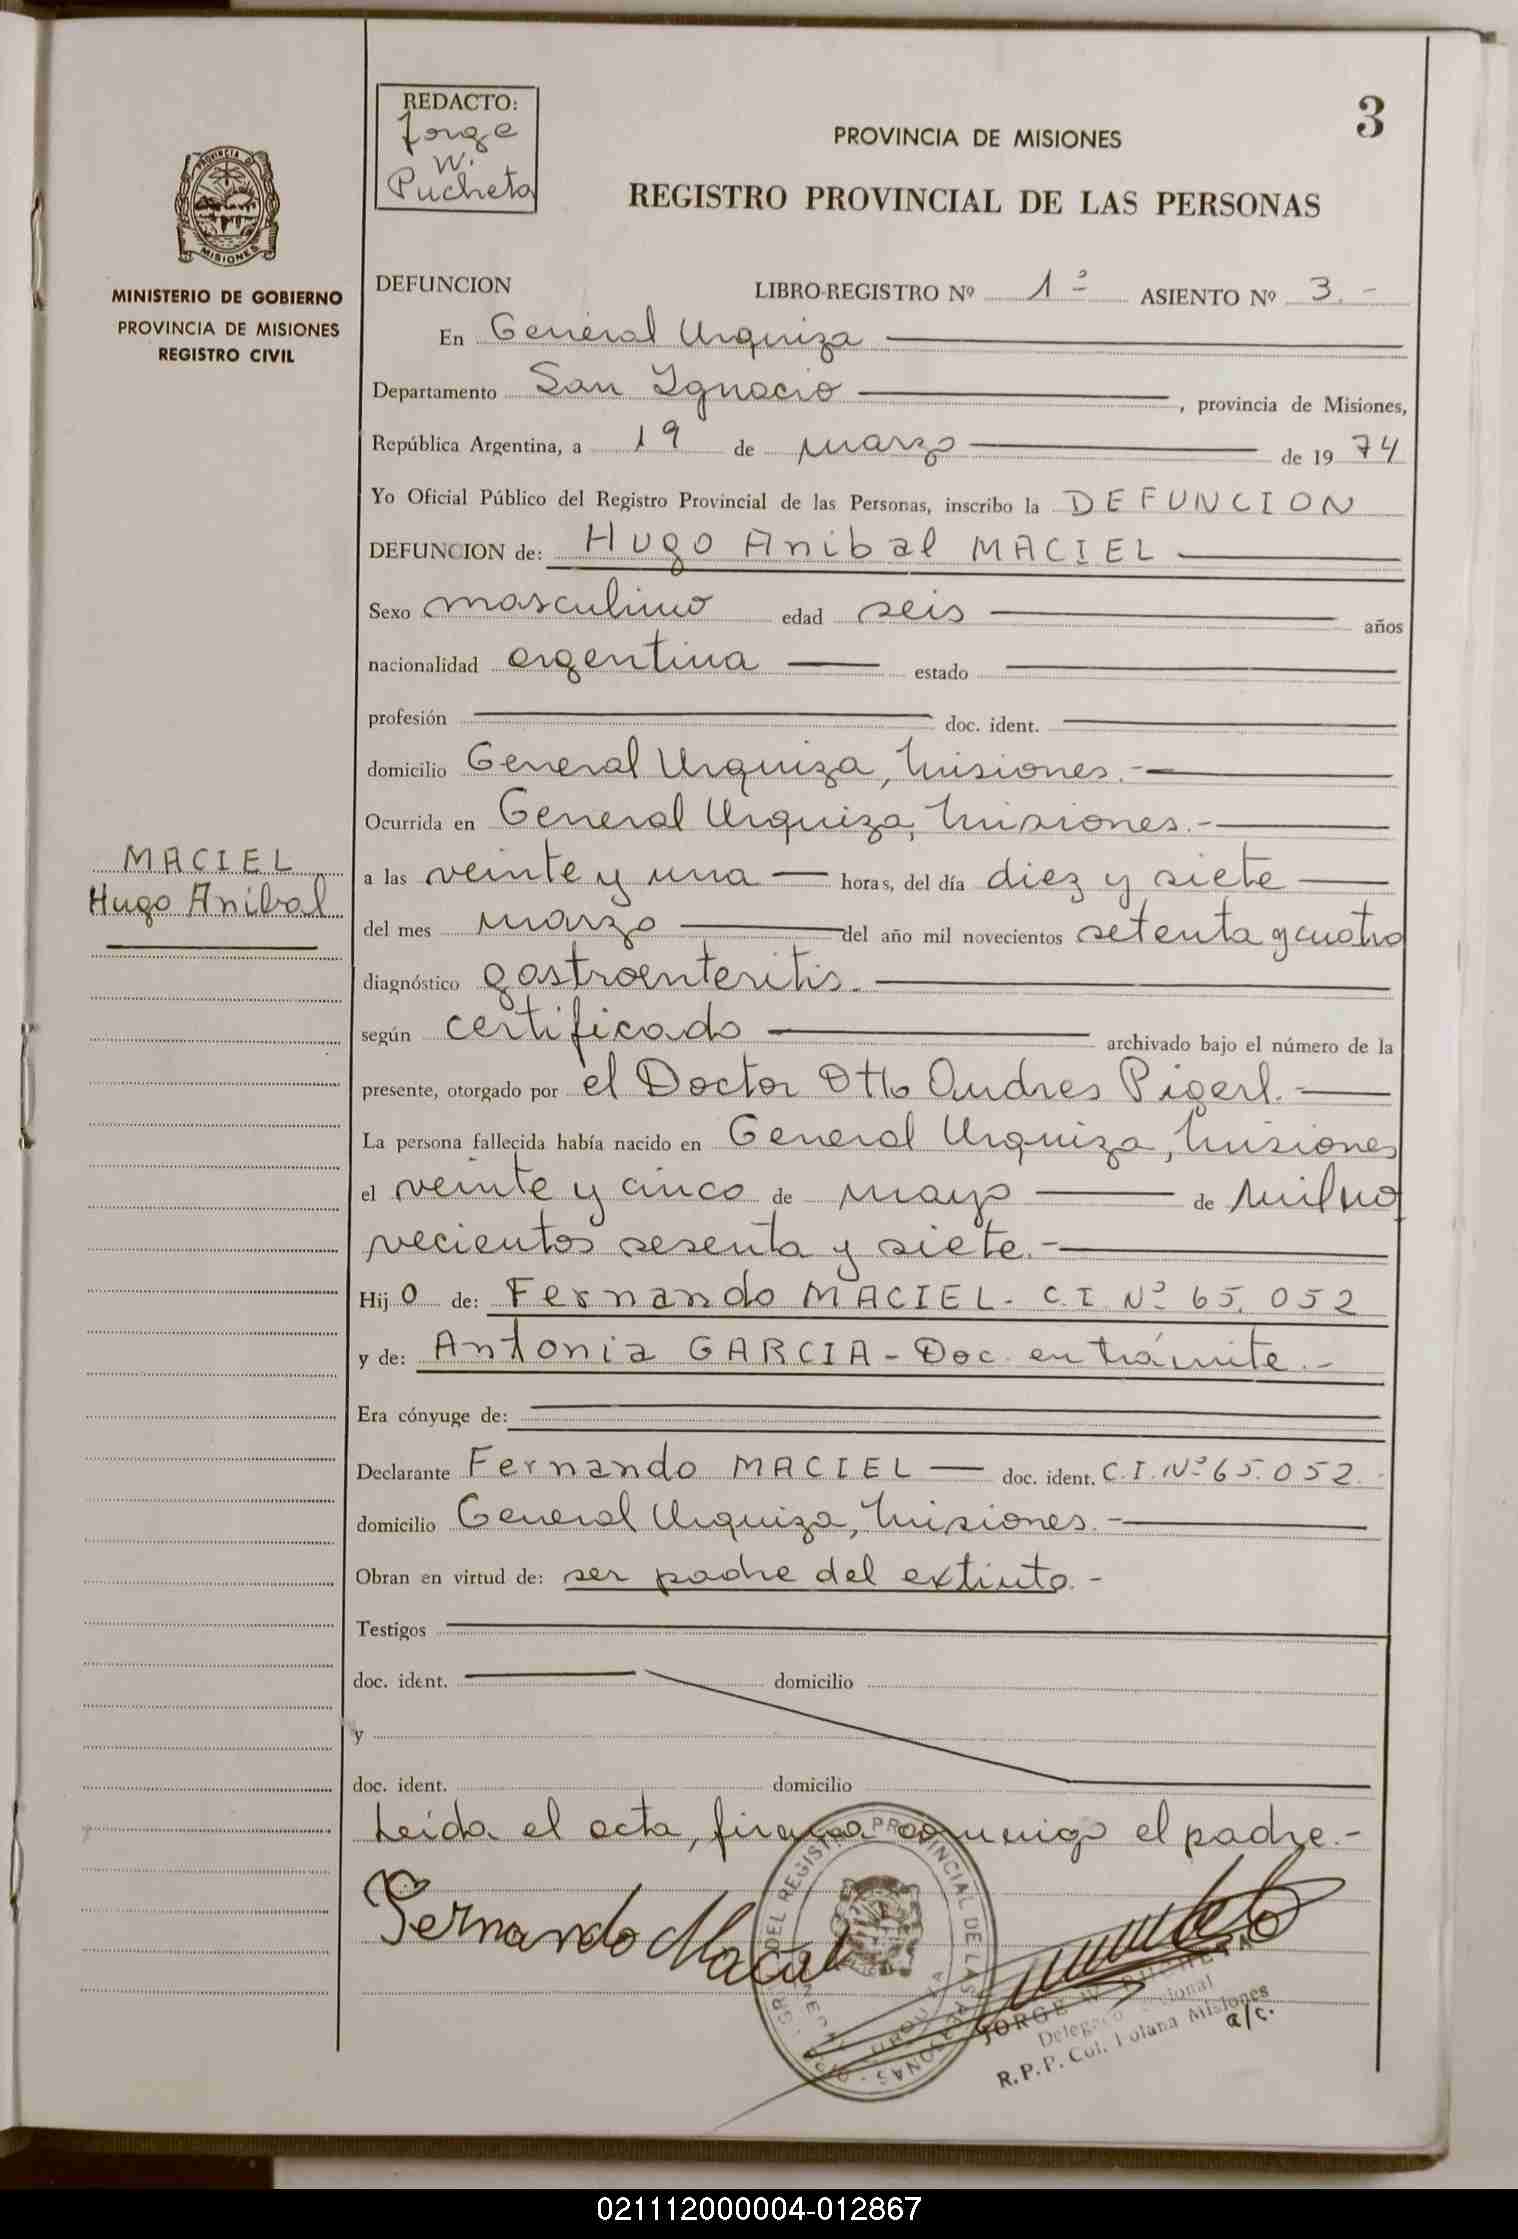 3
REDACTO:
Jorge
W.
Pucheta
PROVINCIA DE MISIONES
REGISTRO PROVINCIAL DE LAS PERSONAS
PROVINCIA DE
MISIONES
MINISTERIO DE GOBIERNO
PROVINCIA DE MISIONES
REGISTRO CIVIL
DEFUNCION LIBRO-REGISTRO Nº 1º ASIENTO Nº 3.-
En General Urquiza
Departamento San Ignacio, provincia de Misiones,
República Argentina, a 19 de marzo de 1974
Yo Oficial Público del Registro Provincial de las Personas, inscribo la DEFUNCION
DEFUNCION de: Hugo Anibal MACIEL
Sexo masculino edad seis años
nacionalidad argentina estado
profesión doc. ident.
domicilio General Urquiza, Misiones.-
Ocurrida en General Urquiza, Misiones.-
MACIEL
Hugo Anibal
a las veinte y una horas, del día diez y siete
del mes marzo del año mil novecientos setenta y cuatro
diagnóstico gastroenteritis.
según certificado archivado bajo el número de la
presente, otorgado por el Doctor Otto Andres Pigerl.
La persona fallecida había nacido en General Urquiza, Misiones
el veinte y cinco de mayo de mil no
vecientos sesenta y siete.-
Hijo de: Fernando MACIEL - C.I. Nº 65.052
y de: Antonia GARCIA - Doc. en trámite.-
Era cónyuge de:
Declarante Fernando MACIEL doc. ident. C.I. Nº 65.052.-
domicilio General Urquiza, Misiones.-
Obran en virtud de: ser padre del extinto.-
Testigos
doc. ident. domicilio
y
doc. ident. domicilio
Leída el acta, firma conmigo el padre.-
Fernando Maciel
DEL REGISTRO PROVINCIAL DE LAS PERSONAS
URQUIZA
JORGE W. PUCHETA
R.P.P. Col. Polana Misiones
a/c.
021112000004-012867